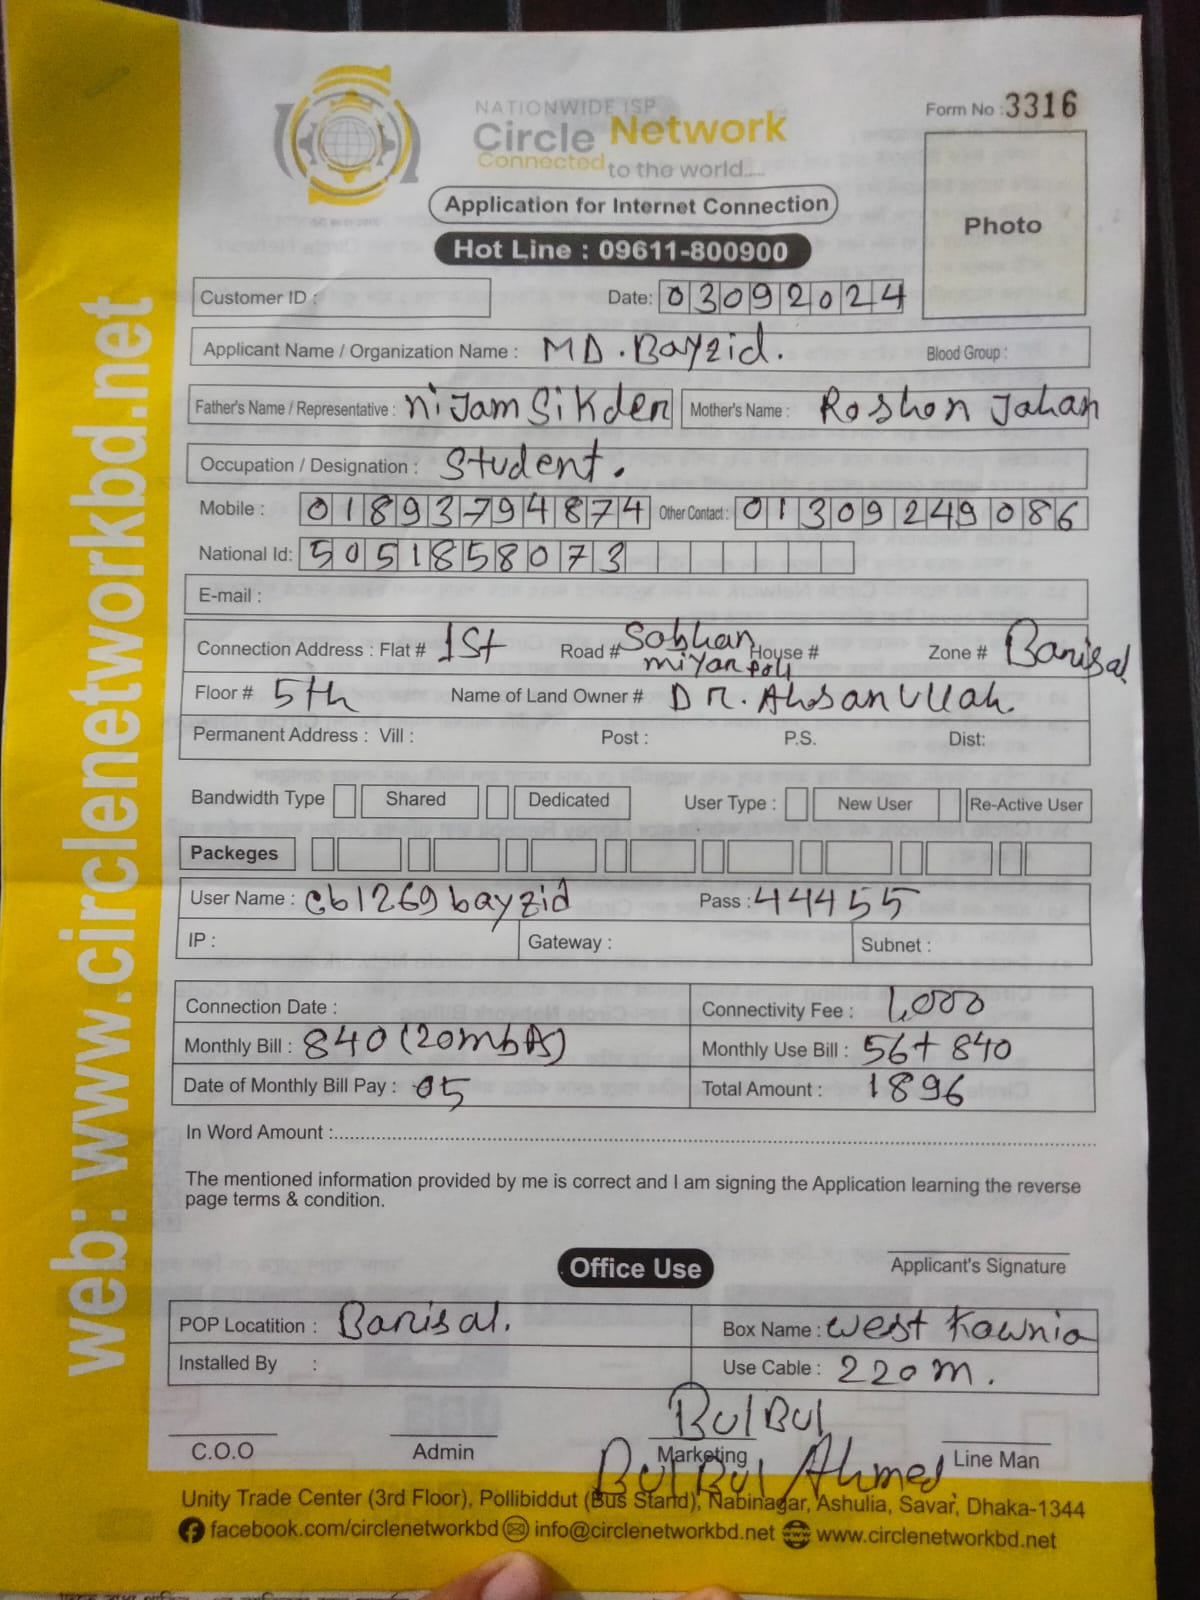 web: www.circlenetworkbd.net
NATIONWIDE ISP
Circle Network
Connected to the world....
Form No : 3316
Photo
Application for Internet Connection
Hot Line : 09611-800900
Customer ID : Date: 03092024
Applicant Name / Organization Name : MD. Bayzid. Blood Group :
Father's Name / Representative : nijam Sikder Mother's Name : Roshon Jahan
Occupation / Designation : Student.
Mobile : 01893794874 Other Contact : 01309249086
National Id: 5051858073
E-mail :
Connection Address : Flat # 1St Road # Sobhan miyar poll House # Zone # Barisal
Floor # 5th Name of Land Owner # DR. Ahsan Ullah.
Permanent Address : Vill : Post : P.S. Dist:
Bandwidth Type Shared Dedicated User Type : New User Re-Active User
Packeges
User Name : cb1269bayzid Pass : 44455
IP : Gateway : Subnet :
Connection Date : Connectivity Fee : 1,000
Monthly Bill : 840 (20mbps) Monthly Use Bill : 56+840
Date of Monthly Bill Pay : 05 Total Amount : 1896
In Word Amount :
The mentioned information provided by me is correct and I am signing the Application learning the reverse
page terms & condition.
Applicant's Signature
Office Use
POP Locatition : Barisal. Box Name : West Kawnia
Installed By : Use Cable : 220 m.
BulBul
C.O.O Admin Marketing Line Man
BulBul Ahmed
Unity Trade Center (3rd Floor), Pollibiddut (Bus Stand), Nabinagar, Ashulia, Savar, Dhaka-1344
facebook.com/circlenetworkbd info@circlenetworkbd.net www.circlenetworkbd.net